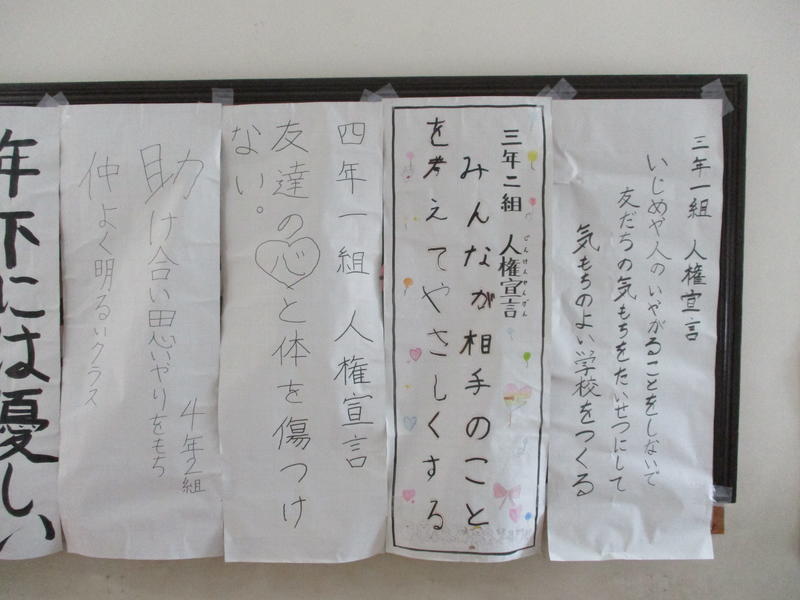 三年一組 人権宣言
いじめや人のいやがることをしないで
友だちの気もちをたいせつにして
気もちのよい学校をつくる
三年二組 人権宣言
じんけんせんげん
みんなが相手のこと
を考えてやさしくする
四年一組 人権宣言
友達の心と体を傷つけ
ない。
4年2組
助け合い思いやりをもち
仲よく明るいクラス
年下には優しい